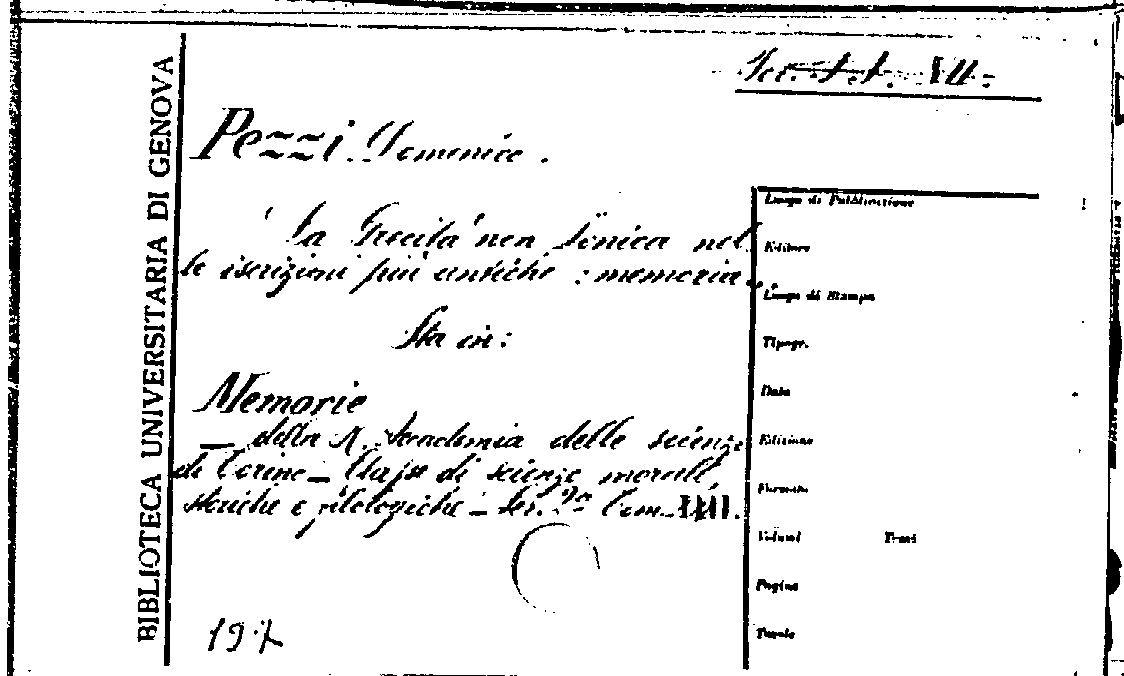 BIBLIOTECA UNIVERSITARIA DI GENOVA
Pezzi Domenico.
La Grecità non Iönica nel
le iscrizioni più antiche : memoria.
Sta in:
Memorie
— della R. Accademia delle scienze
di Torino — Classe di scienze morali,
storiche e filologiche — Ser. 2ª Tom.
Luogo di Pubblicazione
Editore
Luogo di Stampa
Tipogr.
Data
Edizione
Formato
Volumi Tomi
Pagine
Tavole